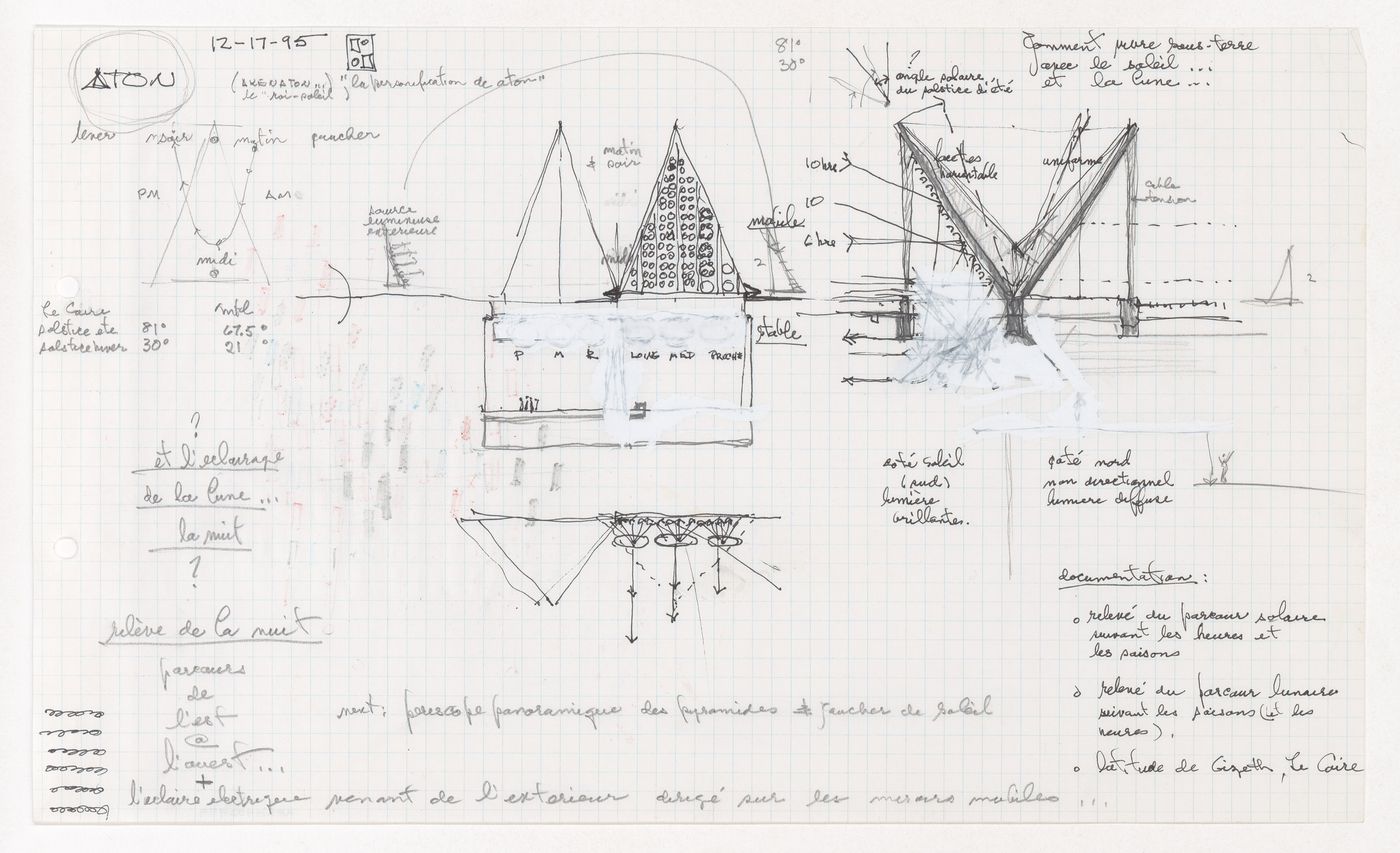 12-17-95
ATON
(AKENATON...) "la personification de aton"
le "roi-soleil"
lever soir matin coucher
PM AM
midi
Le Caire mtl
solstice ete 81° 67.5°
solstice hiver 30° 21°
source
lumineuse
exterieure
matin
& soir
midi
mobile
2
stable
P M R LOING MED PROCHE
81°
30°
?
angle solaire
du solstice d'été
Comment vivre sous-terre
avec le soleil ...
et la lune ...
10 hre
10
6 hre
horizontable
uniforme
cable
tension
2
coté soleil
(sud)
lumière
brillantes.
coté nord
non directionnel
lumiere diffuse
?
et l'eclairage
de la lune ...
la nuit
?
relève de la nuit
parcours
de
l'est
@
l'ouest ...
+
l'eclaire électrique venant de l'exterieur dirigé sur les mirroirs mobiles ...
next: periscope panoramique des pyramides & coucher de soleil
documentation :
o relevé du parcour solaire
suivant les heures et
les saisons
o relevé du parcour lunaire
suivant les saisons (et les
heures).
o latitude de Gizeth, Le Caire